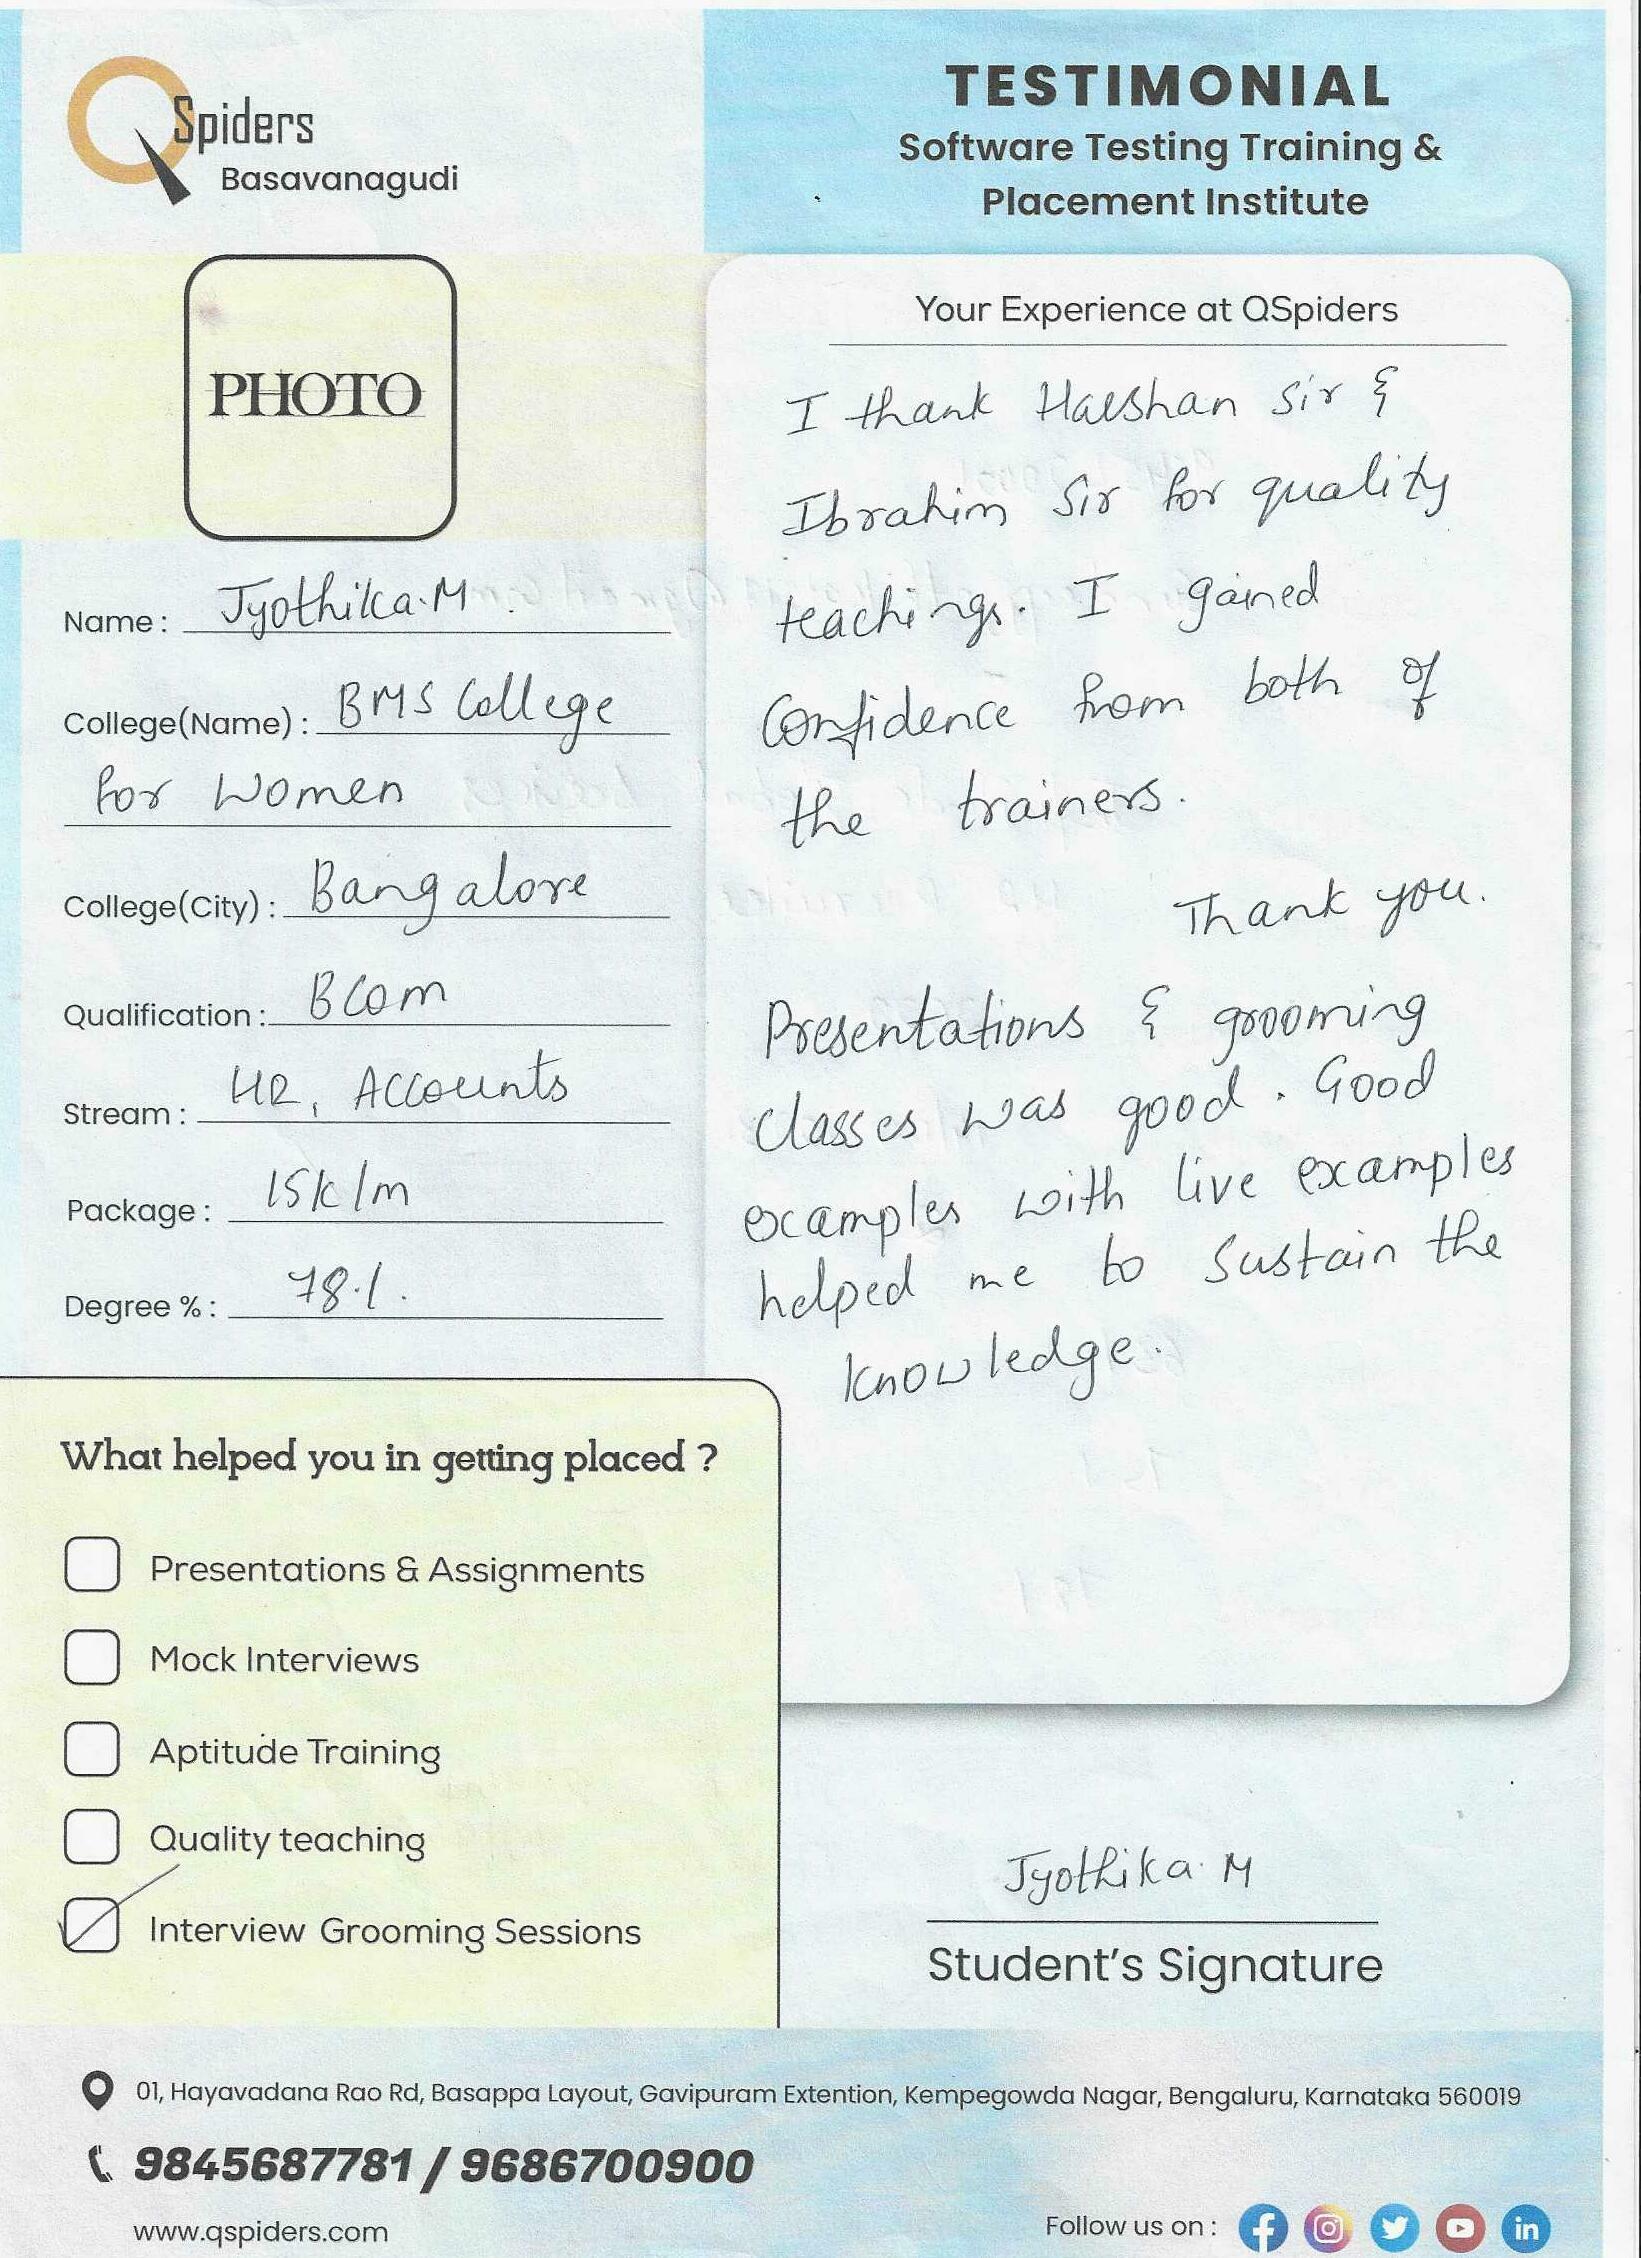 QSpiders
Basavanagudi
TESTIMONIAL
Software Testing Training &
Placement Institute
PHOTO
Name : Jyothika.M
College(Name) : BMS College
for Women
College(City) : Bangalore
Qualification : BCom
Stream : HR, Accounts
Package : 15k/m
Degree % : 78%.
Your Experience at QSpiders
I thank Harshan Sir &
Ibrahim Sir for quality
teachings. I gained
Confidence from both of
the trainers.
Thank you.
Presentations & grooming
classes was good. Good
examples with live examples
helped me to Sustain the
knowledge.
What helped you in getting placed ?
Presentations & Assignments
Mock Interviews
Aptitude Training
Quality teaching
Interview Grooming Sessions
Jyothika.M
Student's Signature
01, Hayavadana Rao Rd, Basappa Layout, Gavipuram Extention, Kempegowda Nagar, Bengaluru, Karnataka 560019
9845687781 / 9686700900
www.qspiders.com
Follow us on :